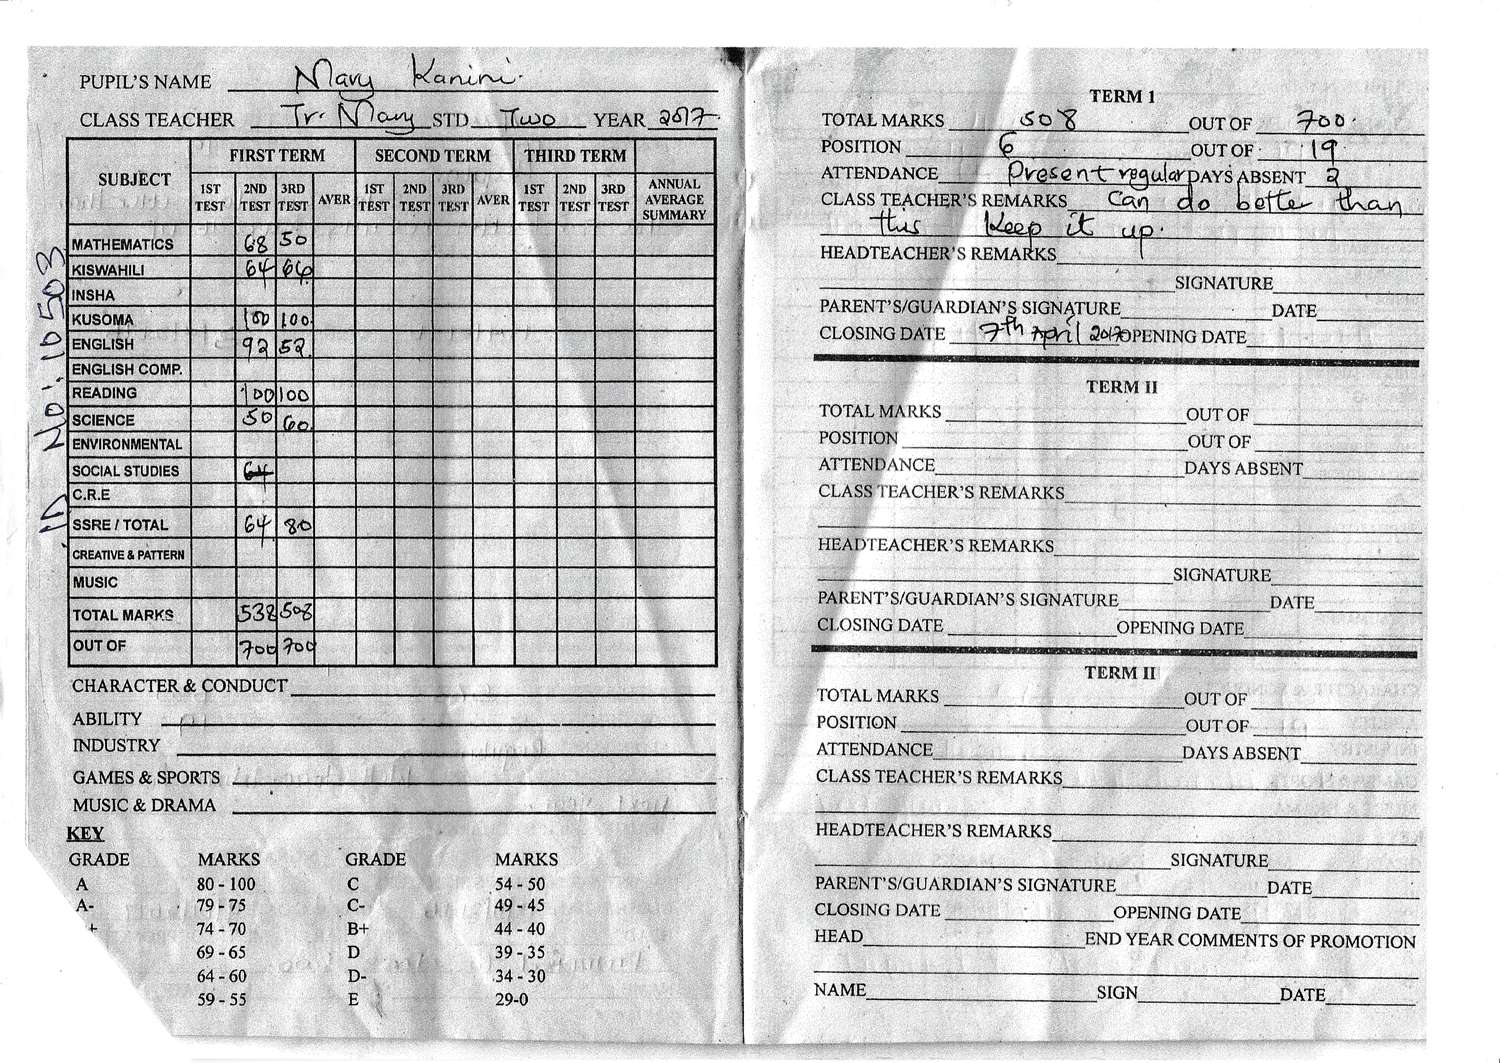 PUPIL'S NAME Mary Kanini
CLASS TEACHER Tr. Mary STD Two YEAR 2017
SUBJECT FIRST TERM SECOND TERM THIRD TERM ANNUAL AVERAGE SUMMARY
1ST TEST 2ND TEST 3RD TEST AVER 1ST TEST 2ND TEST 3RD TEST AVER 1ST TEST 2ND TEST 3RD TEST
MATHEMATICS 68 50
KISWAHILI 64 66
INSHA
KUSOMA 100 100
ENGLISH 92 52
ENGLISH COMP.
READING 100 100
SCIENCE 50 60
ENVIRONMENTAL
SOCIAL STUDIES 64
C.R.E
SSRE / TOTAL 64 80
CREATIVE & PATTERN
MUSIC
TOTAL MARKS 538 508
OUT OF 700 700
CHARACTER & CONDUCT
ABILITY
INDUSTRY
GAMES & SPORTS
MUSIC & DRAMA
KEY
GRADE MARKS GRADE MARKS
A 80 - 100 C 54 - 50
A- 79 - 75 C- 49 - 45
+ 74 - 70 B+ 44 - 40
69 - 65 D 39 - 35
64 - 60 D- 34 - 30
59 - 55 E 29-0
ID No: 10503
TERM 1
TOTAL MARKS 508 OUT OF 700
POSITION 6 OUT OF 19
ATTENDANCE Present regular DAYS ABSENT 2
CLASS TEACHER'S REMARKS Can do better than
this keep it up.
HEADTEACHER'S REMARKS
SIGNATURE
PARENT'S/GUARDIAN'S SIGNATURE DATE
CLOSING DATE 7th April 2017 OPENING DATE
TERM II
TOTAL MARKS OUT OF
POSITION OUT OF
ATTENDANCE DAYS ABSENT
CLASS TEACHER'S REMARKS
HEADTEACHER'S REMARKS
SIGNATURE
PARENT'S/GUARDIAN'S SIGNATURE DATE
CLOSING DATE OPENING DATE
TERM II
TOTAL MARKS OUT OF
POSITION OUT OF
ATTENDANCE DAYS ABSENT
CLASS TEACHER'S REMARKS
HEADTEACHER'S REMARKS
SIGNATURE
PARENT'S/GUARDIAN'S SIGNATURE DATE
CLOSING DATE OPENING DATE
HEAD END YEAR COMMENTS OF PROMOTION
NAME SIGN DATE